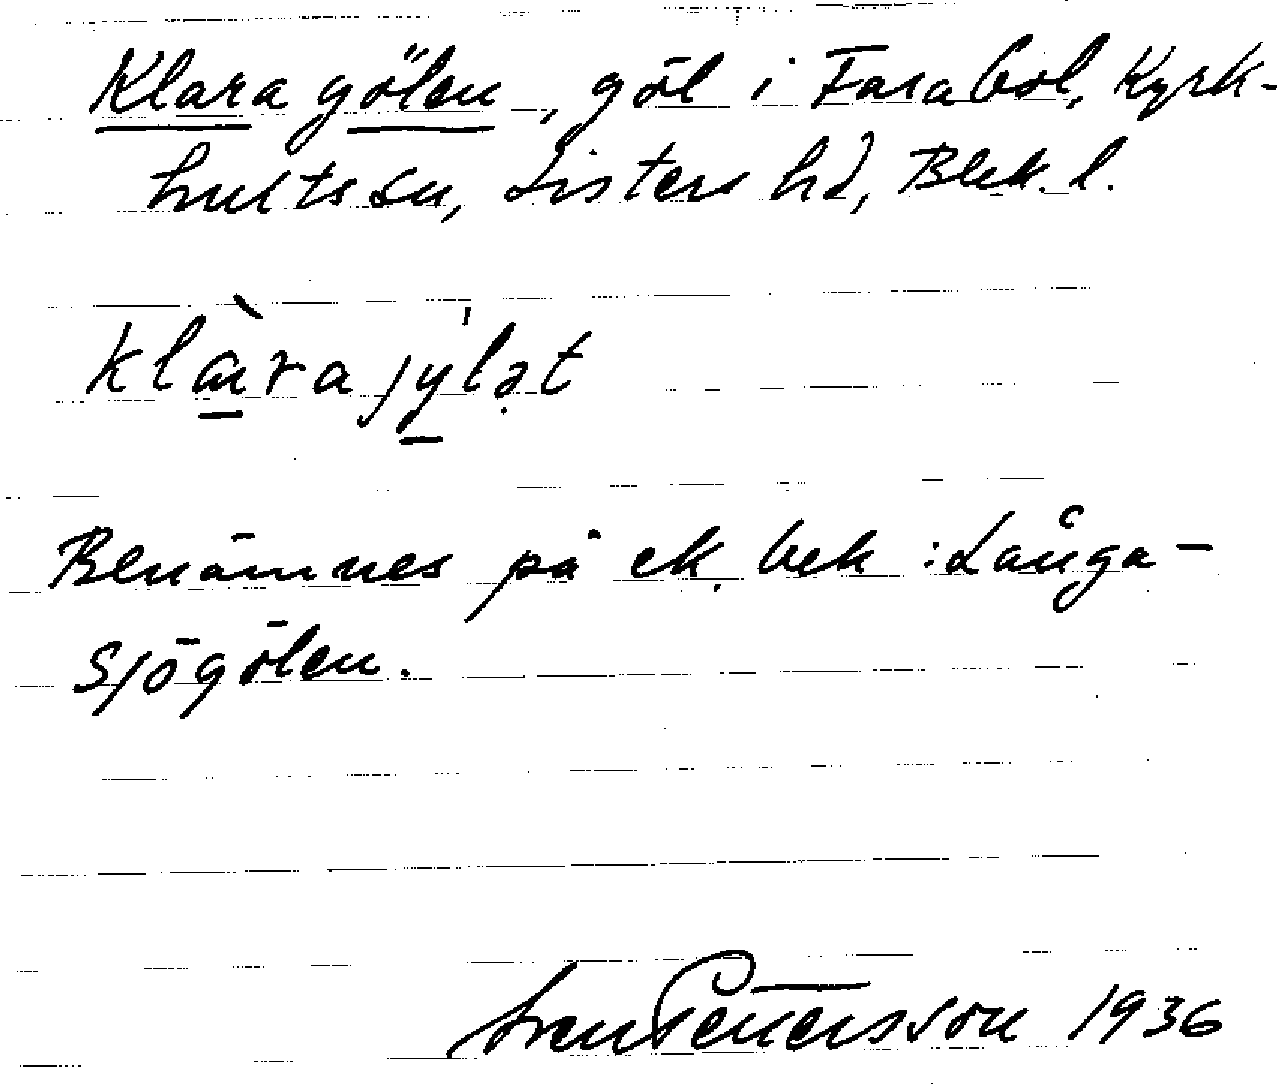 Klara gölen, göl i Farabol, Kyrk-
hults sn, Listers hd, Blek. l.
klàra jy̍lət
Benämnes på ek. bek : Långa-
sjögölen.
Sven Pettersson 1936